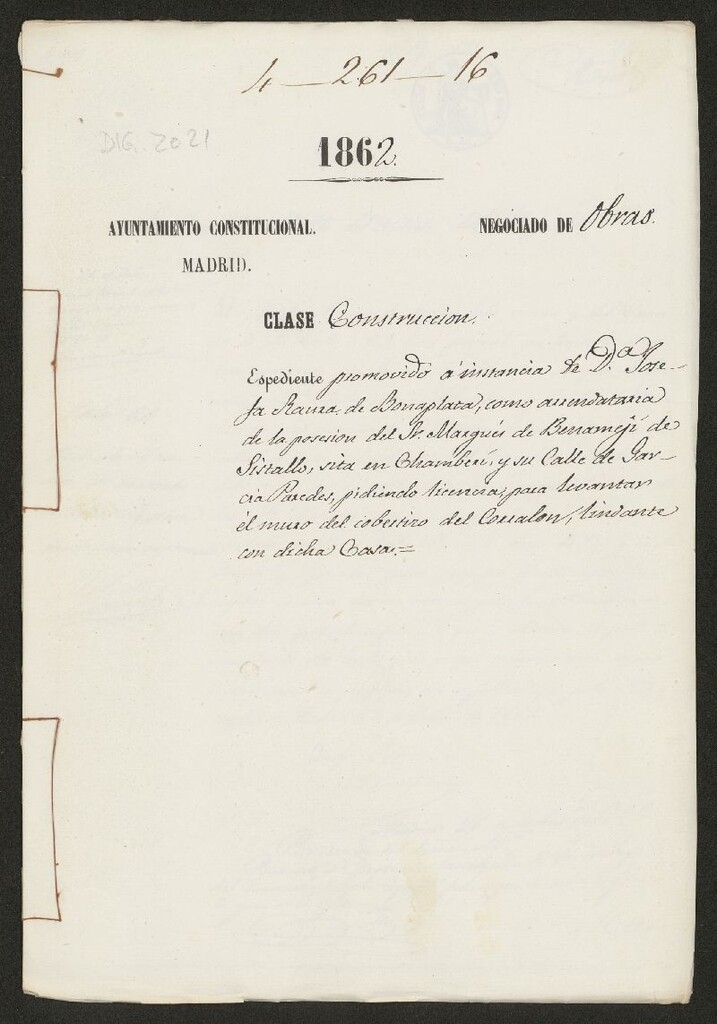 4 — 261 — 16
DIG. 2021
1862.
AYUNTAMIENTO CONSTITUCIONAL.
MADRID.
NEGOCIADO DE Obras.
CLASE Construccion.
Espediente promovido á instancia de D.ª Jose-
fa Raura de Bonaplata, como arrendataria
de la posesion del Sr. Marqués de Benamejí de
Sistallo, sita en Chamberí, y su Calle de Gar-
cia Paredes, pidiendo licencia, para levantar
el muro del cobertizo del Corralon, lindante
con dicha Casa.=